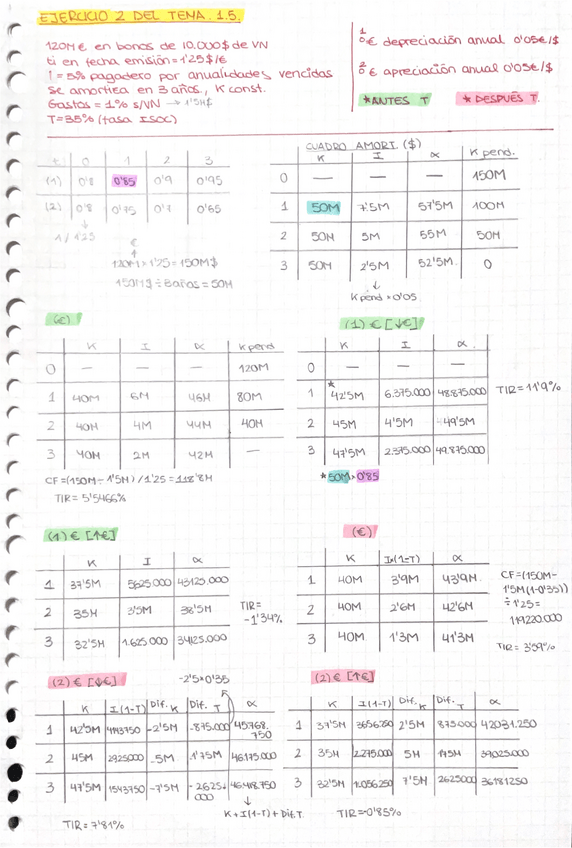 EJERCICIO 2 DEL TEMA. 1.5.
120M € en bonos de 10.000$ de VN
ti en fecha emisión = 1'25 $/€
i = 5% pagadero por anualidades vencidas
Se amortiza en 3 años, K const.
Gastos = 1% s/VN → 1'5M$
T=35% (tasa ISOC)
1 o € depreciación anual 0'05€/$
2 o € apreciación anual 0'05€/$
*ANTES T * DESPUÉS T.
t 0 1 2 3
(1) 0'8 0'85 0'9 0'95
(2) 0'8 0'75 0'7 0'65
1/1'25
€
120M × 1'25 = 150M$
150M$ ÷ 3años = 50M
CUADRO AMORT. ($)
K I α K pend.
0 — — — 150M
1 50M 7'5M 57'5M 100M
2 50M 5M 55M 50M
3 50M 2'5M 52'5M. 0
K pend × 0'05
(€)
K I α K pend
0 — — — 120M
1 40M 6M 46M 80M
2 40M 4M 44M 40M
3 40M 2M 42M —
CF = (150M - 1'5M) / 1'25 = 118'8M
TIR = 5'5466%
(1) € [↓€]
K I α
0 — — —
1 * 42'5M 6.375.000 48.875.000
2 45M 4'5M 49'5M
3 47'5M 2.375.000 49.875.000
TIR = 11'9%
* 50M × 0'85
(1) € [↑€]
K I α
1 37'5M 5625.000 43125.000
2 35M 3'5M 38'5M
3 32'5M 1.625.000 34125.000
TIR = -1'34%
(€)
K I×(1-T) α
1 40M 3'9M 43'9M
2 40M 2'6M 42'6M
3 40M 1'3M 41'3M
CF = (150M -
1'5M (1-0'35))
÷ 1'25 =
119220.000
TIR = 3'59%
(2) € [↓€] -2'5×0'35
K I(1-T) Dif. K Dif. T α
1 42'5M 4143750 -2'5M -875.000 45.768.750
2 45M 2925000 -5M 1'75M 46.175.000
3 47'5M 1543750 -7'5M -2625.000 46.418.750
K + I(1-T) + Dif. T
TIR = 7'81%
(2) € [↑€]
K I(1-T) Dif. K Dif. T α
1 37'5M 3656250 2'5M 875.000 42031.250
2 35M 2.275.000 5M 1'75M 39025.000
3 32'5M 1.056.250 7'5M 2625000 36181250
TIR = -0'85%